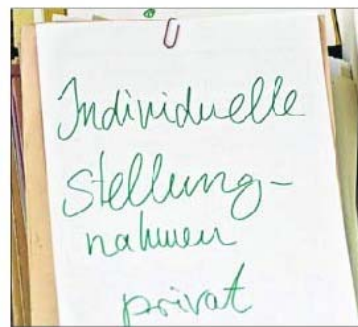 Individuelle
Stellung-
nahmen
privat